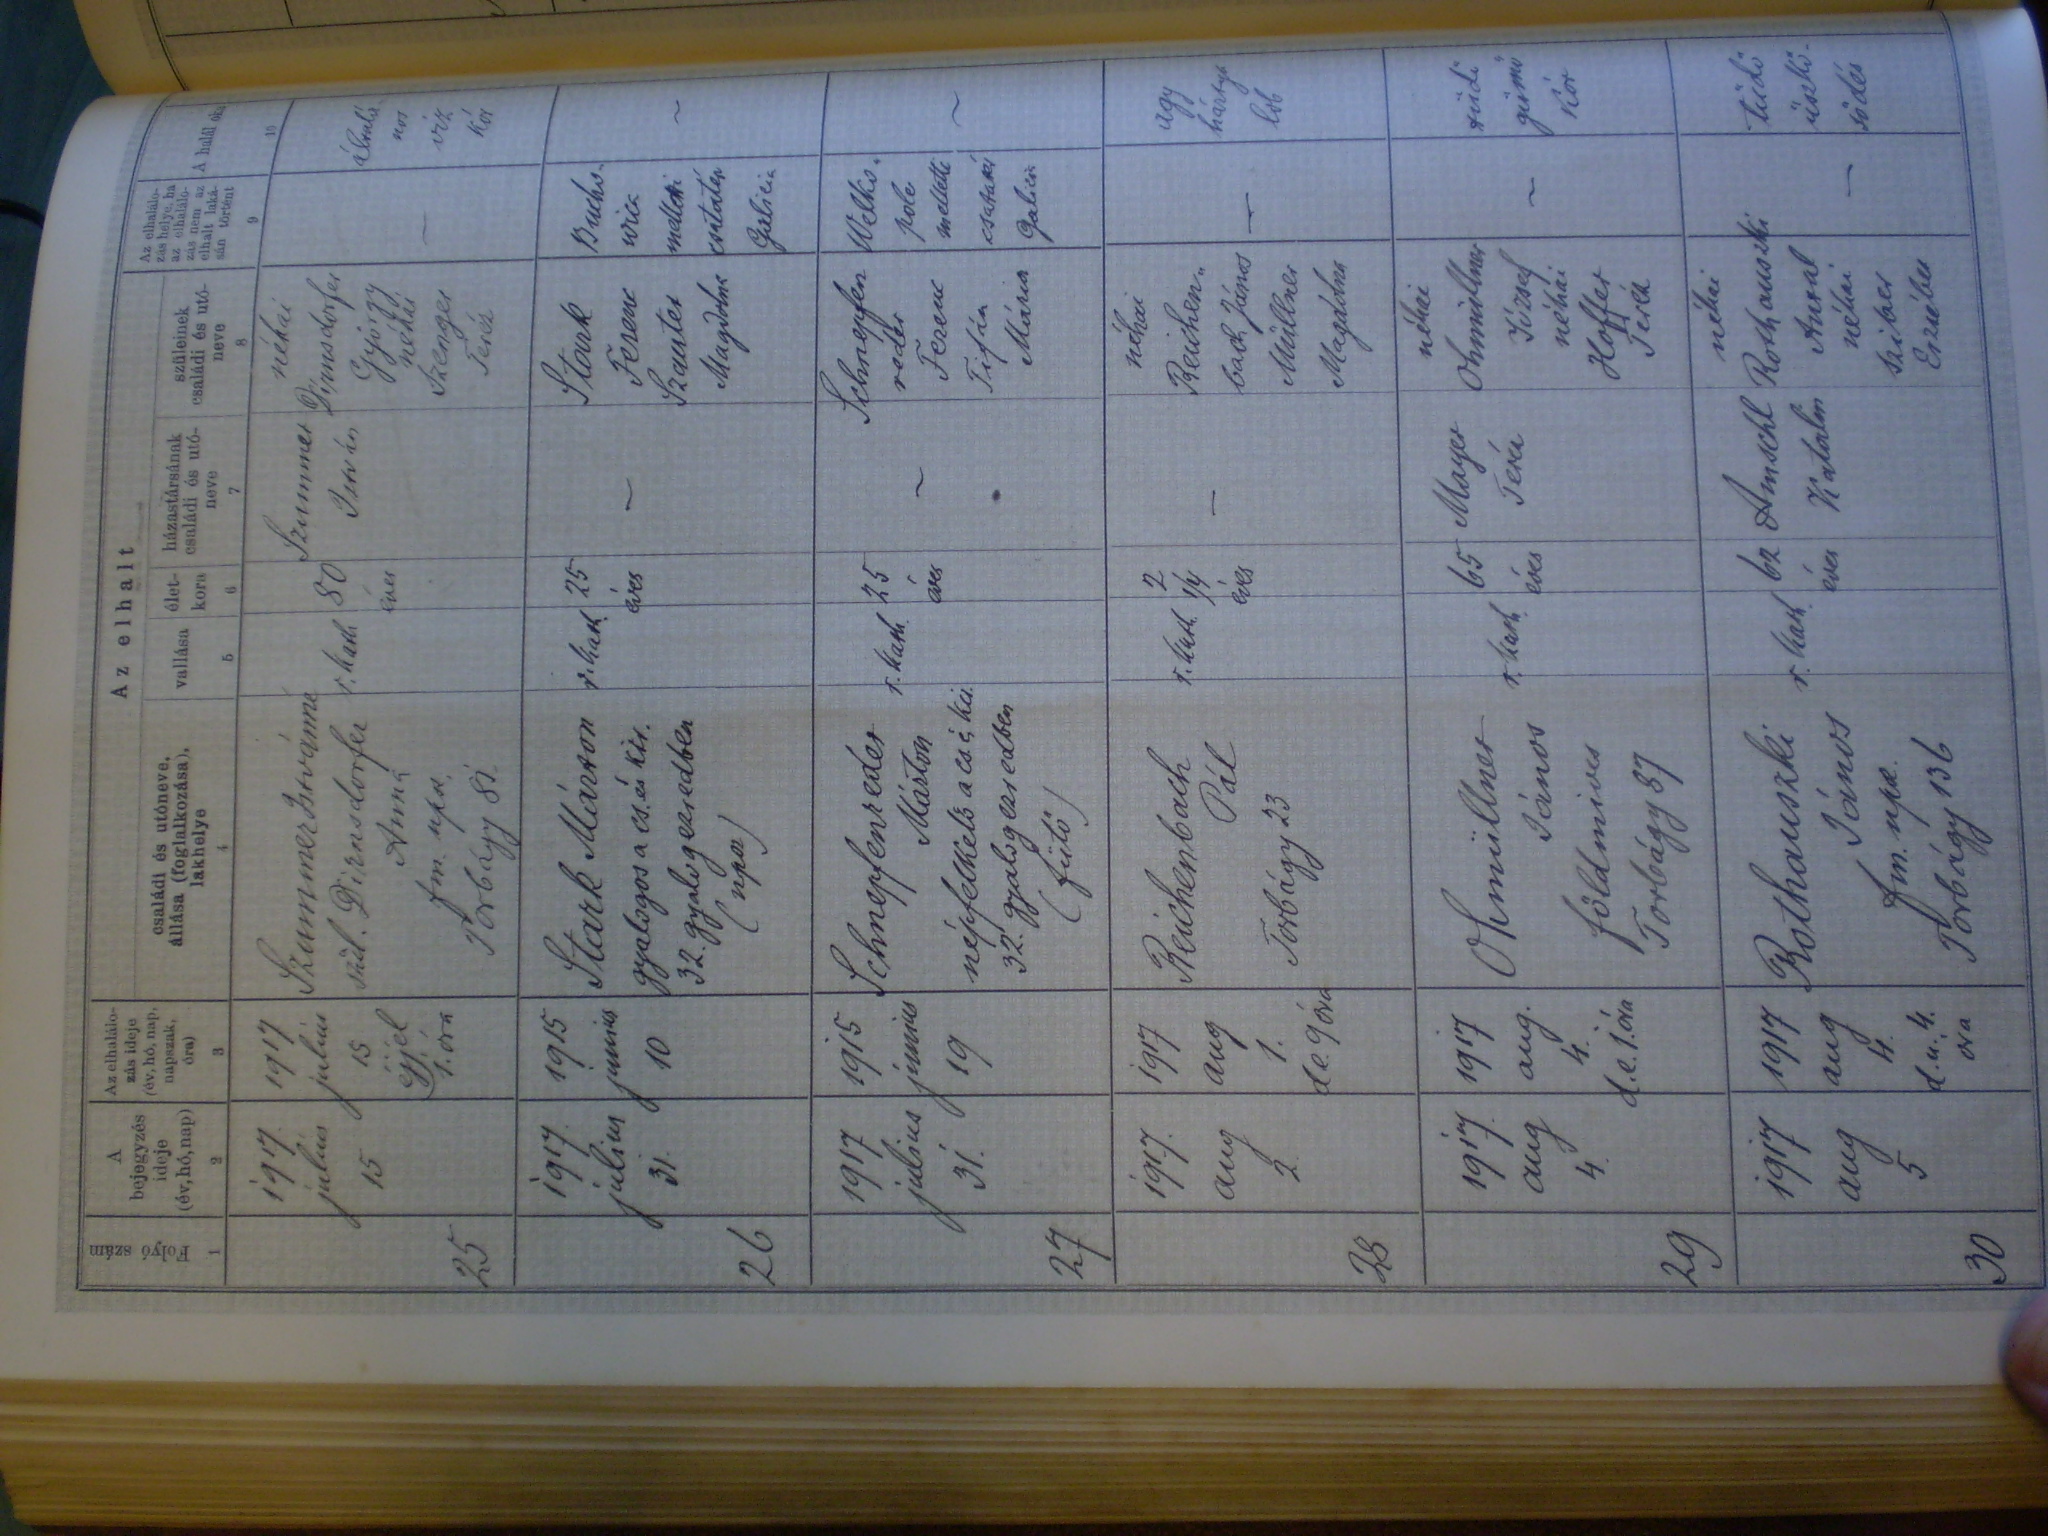 Az elhalt
Folyó szám
A bejegyzés ideje (év, hó, nap)
Az elhalálo-
zás ideje
(év, hó, nap,
napszak,
óra)
családi és utóneve,
állása (foglalkozása),
lakhelye
vallása
élet-
kora
házastársának
családi és utó-
neve
szüleinek
családi és utó-
neve
Az elhalálo-
zás helye, ha
az elhaláló-
zás nem az
elhalt laká-
sán történt
A halál oka
1
2
3
4
5
6
7
8
9
10
25
1917.
julius
15
1917
julius
15
éjjel
1. óra
Szammer Istvánné
szül. Dirnsdorfer
Anna
fm. nps.
Torbágy 81.
r. kath
80
éves
Szammer
István
néhai
Dirnsdorfer
György
néhai
Szenger
Teréz
—
általá-
nos
víz
kór
26
1917.
julius
31.
1915
junius
10
Stark Márton
gyalogos a cs. és kir.
32. gyalogezredben
(npsz)
r. kath
25
éves
~
Stark
Ferenc
Szauter
Magdolna
wica
melletti
csatatér
Galicia
~
27
1917
julius
31.
1915
junius
19
Schnepfenreder
Márton
népfelkelő a cs. é. kir.
32. gyalogezredben
(fütő)
r. kath.
25
éves
~
Schnepfen
reder
Ferenc
Mária
pole
mellette
csatatér
Galicia
~
28
1917.
aug
2.
1917
aug
1.
de. 9 óra
Reichenbach
Pál
Torbágy 23
r. kath.
2
1/4
éves
—
néhai
Reichen-
bach János
Müllner
Magdolna
—
agy
hártya
lob
29
1917.
aug
4.
1917
aug.
4.
d.e. 1. óra
Ohmüllner
János
földmíves
Torbágy 87
r. kath.
65
éves
Mayer
Teréz
néhai
Ohmüllner
József
néhai
Hoffer
Teréz
~
tüdő
gümő
kór
30
1917
aug
5
1917
aug
4.
d.u. 4.
óra
Rothauszki
János
fm. nps.
Torbágy 136
r. kath.
62
éves
Amschl
Katalin
néhai
Rothauszki
Antal
néhai
Erzsébet
—
tüdő
üszkö-
södés